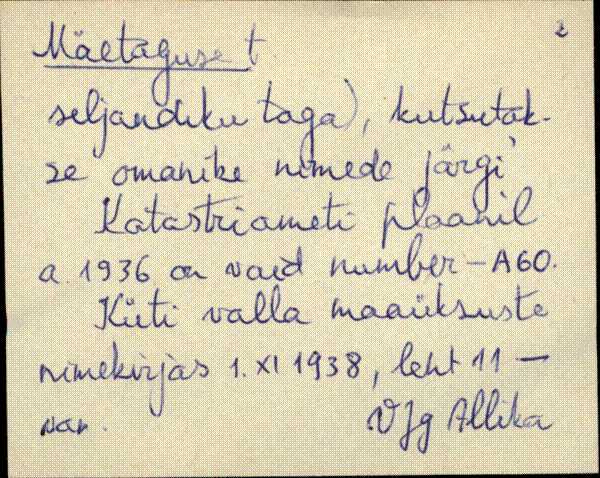 2
Mäetaguse t.
seljandiku taga), kutsutak-
se omanike nimede järgi
Katastriameti plaanil
a 1936 on vaid number – A60.
Küti valla maaüksuste
nimekirjas 1. XI 1938, leht 11 –
VJg Allika